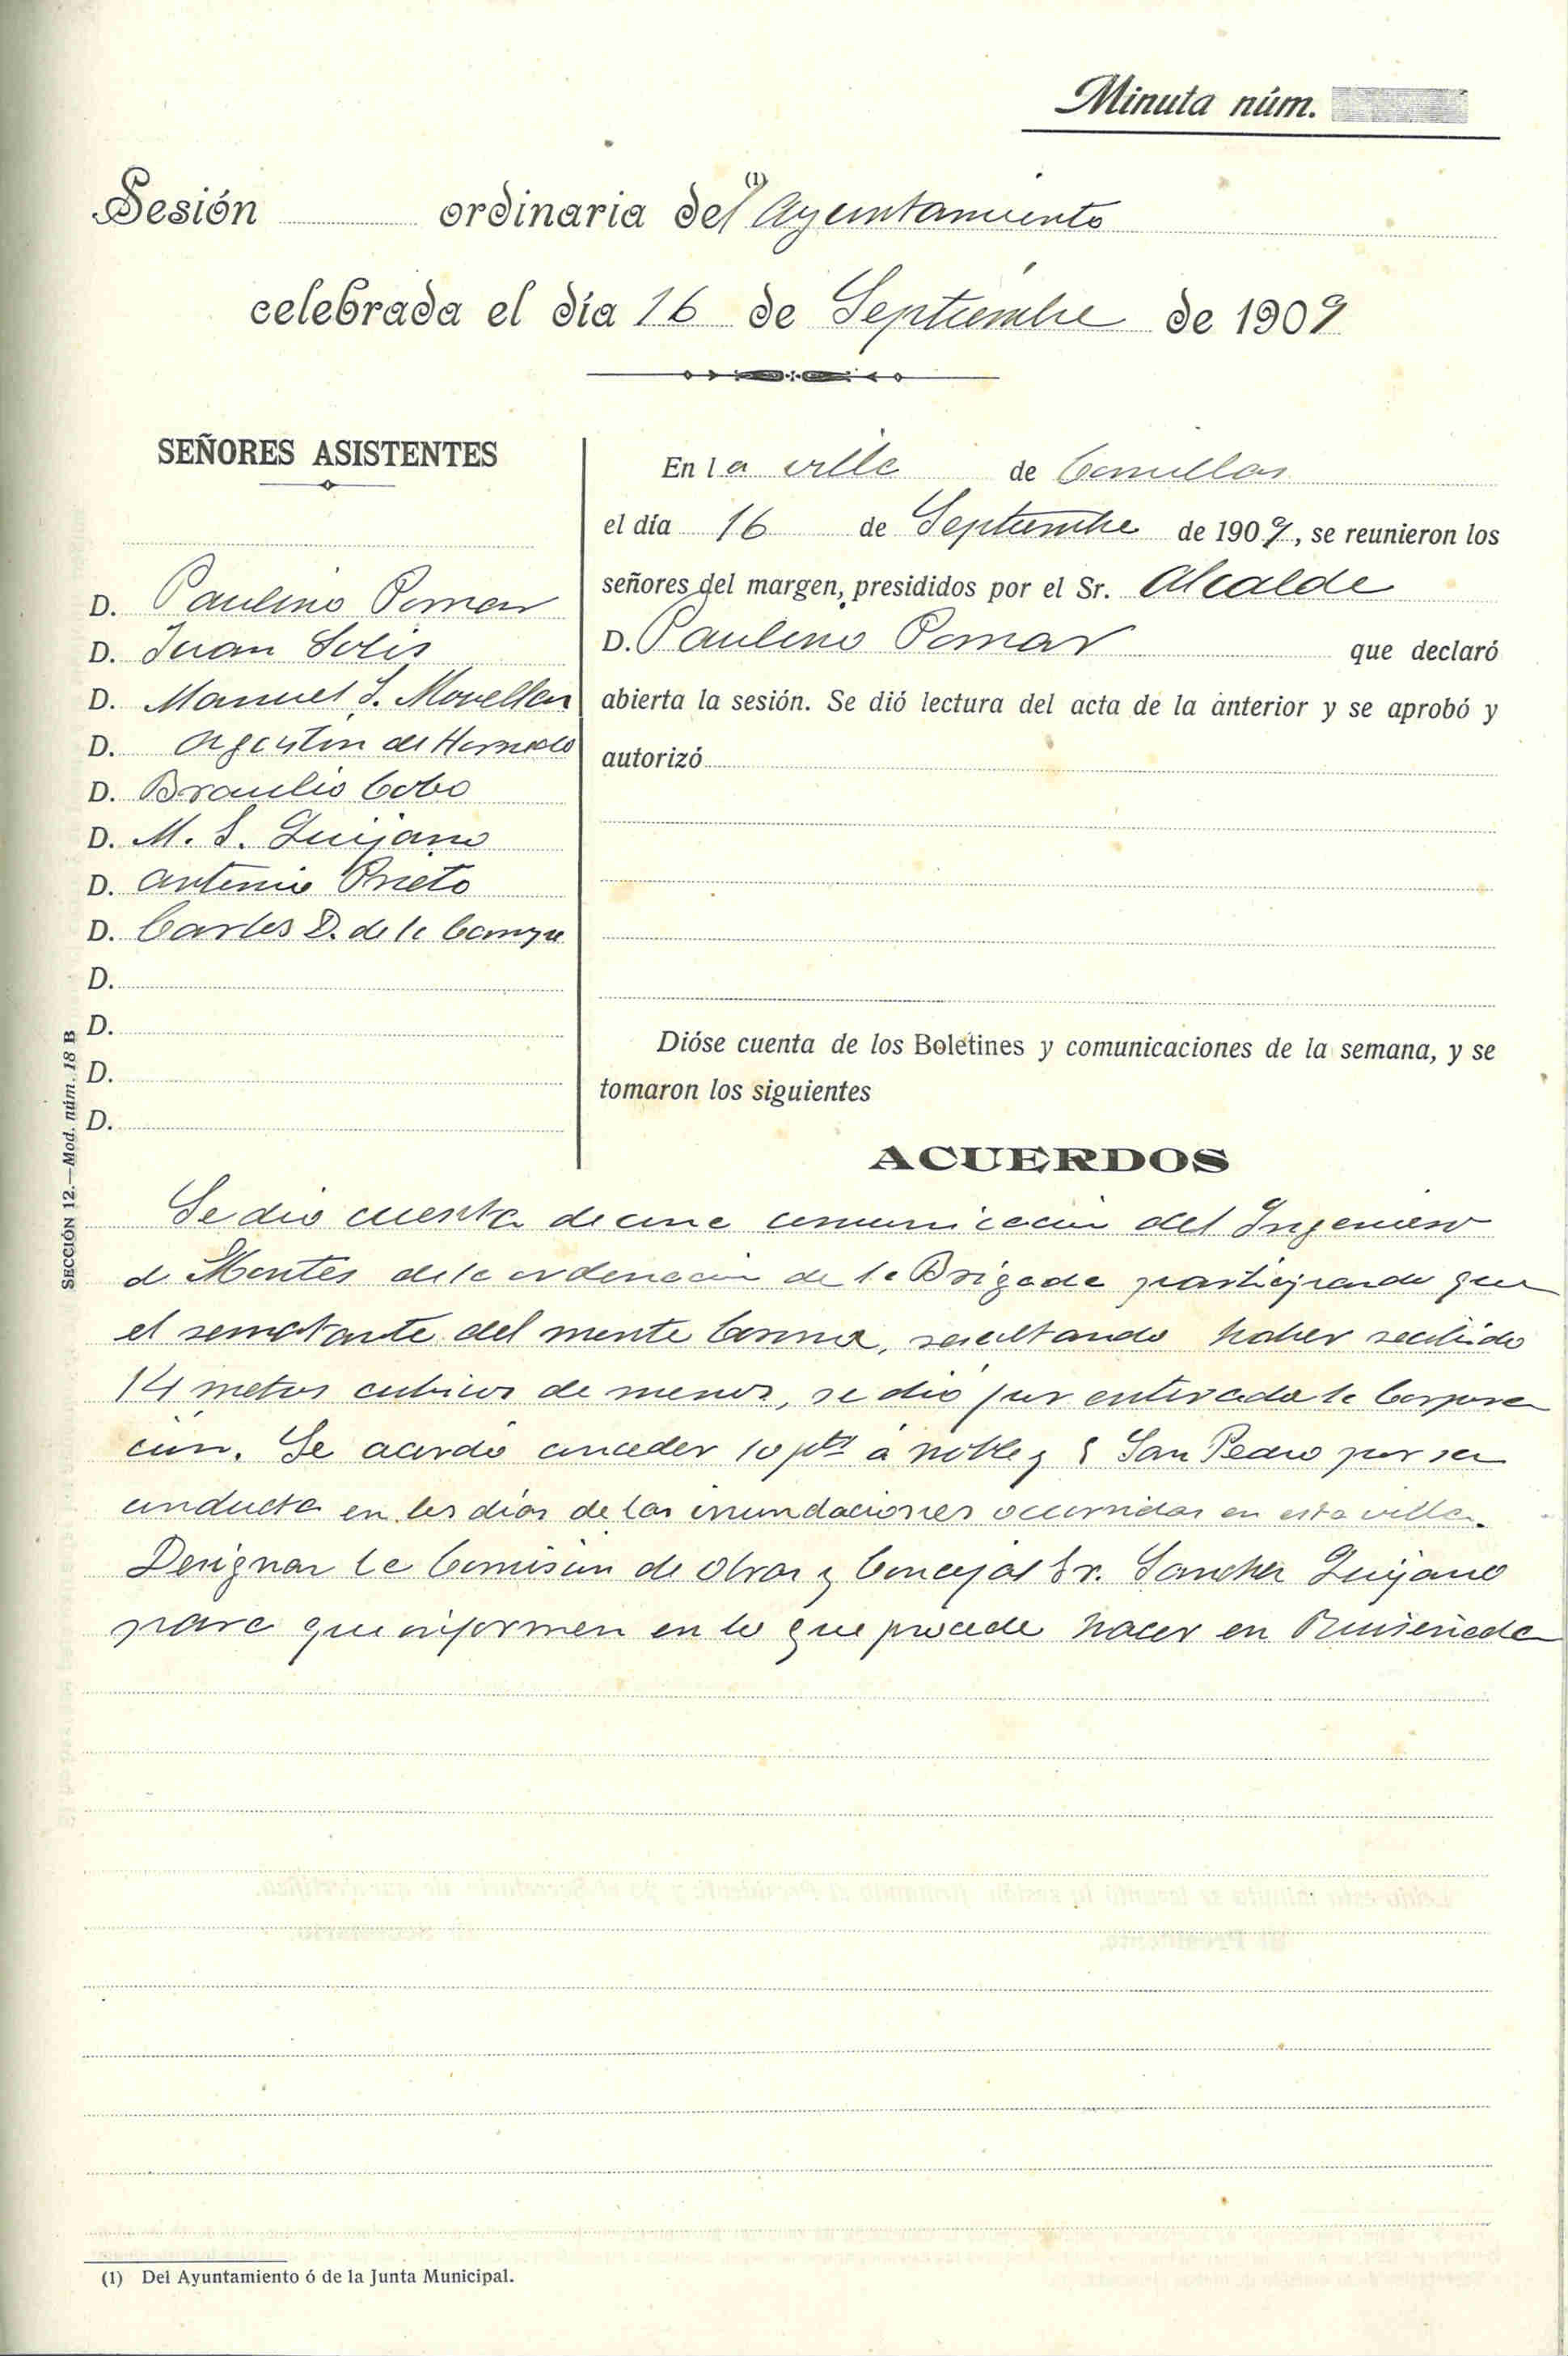 Minuta núm.
Sesión ordinaria del (1) Ayuntamiento
celebrada el día 16 de Septiembre de 1909
SEÑORES ASISTENTES
D. Paulino Pomar
D. Juan Solis
D. Manuel S. Movellan
D. Agustin de Hornedo
D. Braulio Cobo
D. M. S. Quijano
D. Antonio Prieto
D. Carlos D. de la Campa
D.
D.
D.
D.
SECCIÓN 12.—Mod. núm. 18 B
En la villa de Comillas
el día 16 de Septiembre de 1909, se reunieron los
señores del margen, presididos por el Sr. Alcalde
D. Paulino Pomar que declaró
abierta la sesión. Se dió lectura del acta de la anterior y se aprobó y
autorizó
Dióse cuenta de los Boletines y comunicaciones de la semana, y se
tomaron los siguientes
ACUERDOS
Se dio cuenta de una comunicacion del Ingeniero
de Montes de la ordenacion de la Brigada participando que
el rematante del monte Corona, resultando haber recibido
14 metros cubicos de menos, se dió por enterada la Corpora
cion. Se acordó conceder 10 pts á Noble y San Pedro por su
conducta en los dias de las inundaciones ocurridas en esta villa.
Designar la Comision de Obras y Concejal Sr. Sanchez Quijano
para que informen en lo que procede hacer en Ruiseñada
(1) Del Ayuntamiento ó de la Junta Municipal.